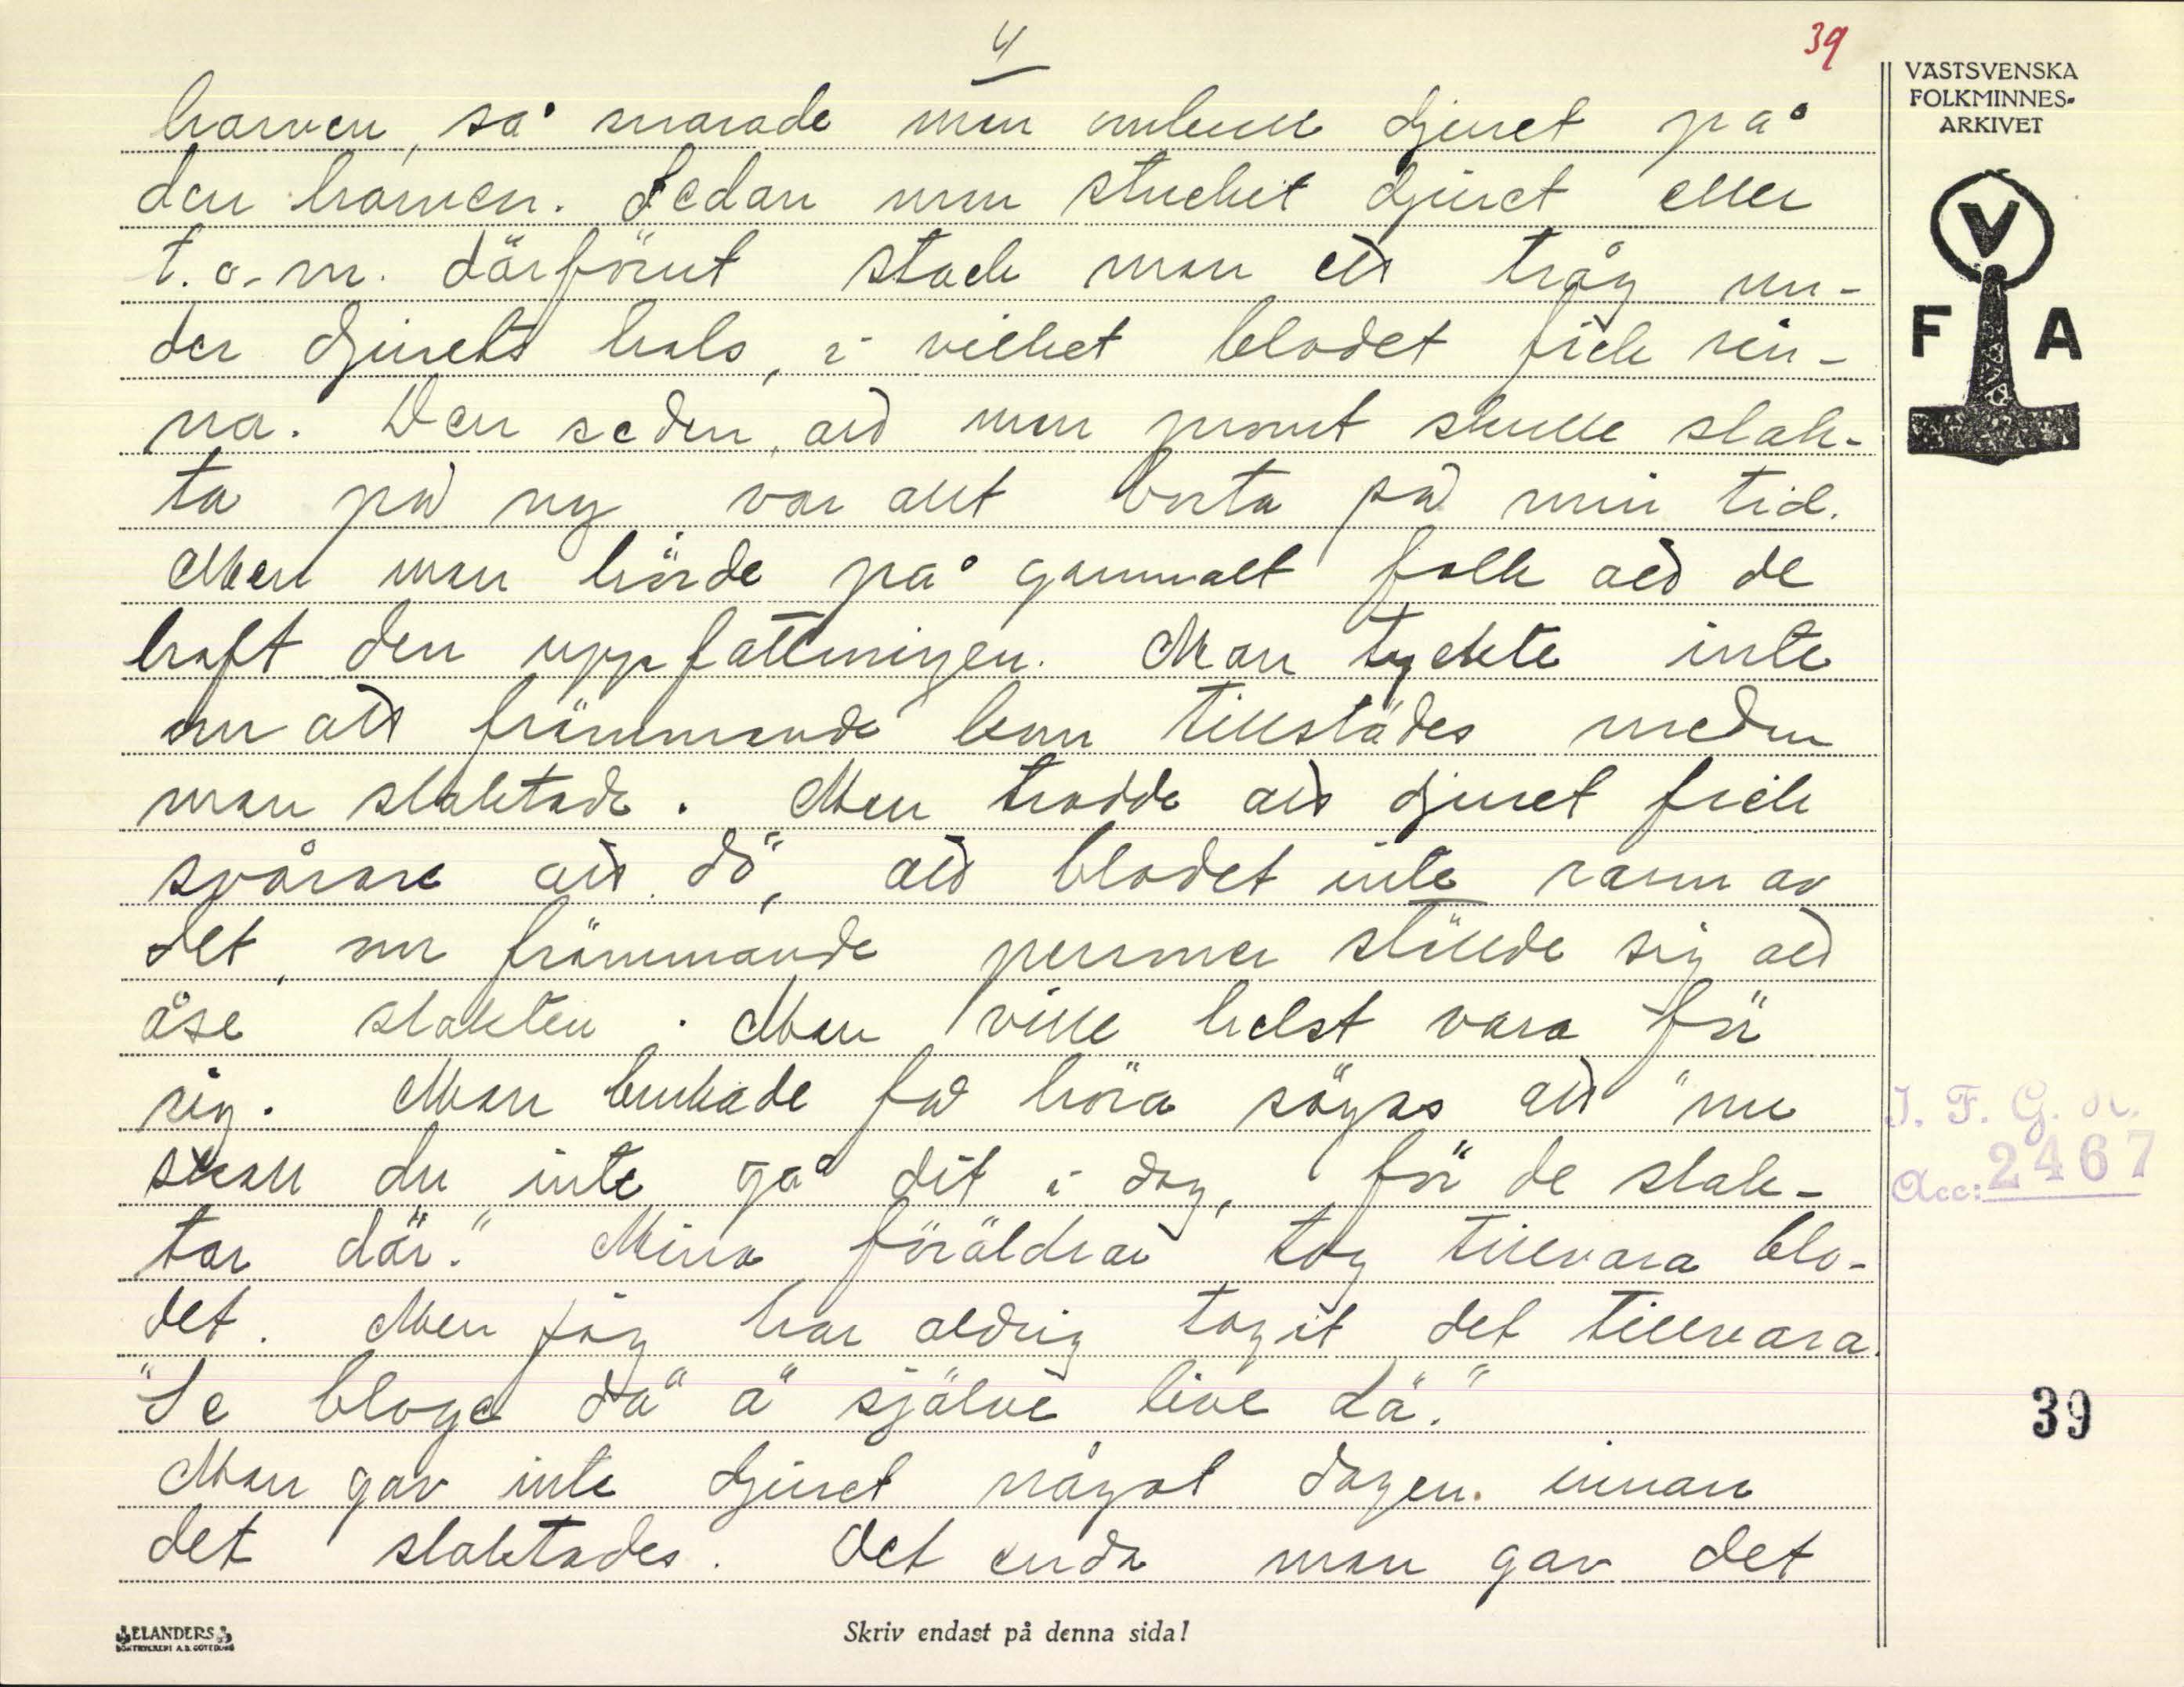 4
39
VÄSTSVENSKA
FOLKMINNES-
ARKIVET
V
F A
haven, så snarade man omkull djuret på
den haven. Sedan man stuckit djuret eller
t.o.m. därförut stack man ett tråg un-
der djurets hals, i vilket blodet fick rin-
na. Den seden, att man prompt skulle slak-
ta på ny var allt borta på min tid.
Men man hörde på gammalt folk att de
haft den uppfattningen. Man tyckte inte
om att främmande kom tillstädes medan
man slaktade. Man trodde att djuret fick
svårare att dö, att blodet inte rann av
det, om främmande personer ställde sig att
åse slakten. Man ville helst vara för
sig. Man brukade få höra sägas att "nu
skall du inte gå dit i dag, för de slak-
tar där." Mina föräldrar tog tillvara blo-
det. Men jag har aldrig tagit det tillvara.
"Se bloge dä ä själve live dä."
Man gav inte djuret något dagen innan
det slaktades. Det enda man gav det
I. F. G. H.
Acc: 2467
39
ELANDERS
BOKTRYCKERI A.B. GÖTEBORG
Skriv endast på denna sida!